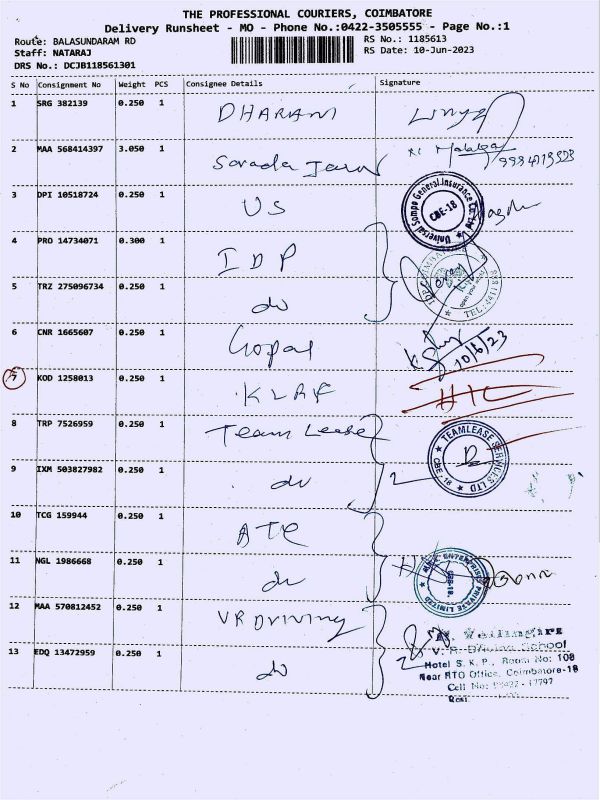 THE PROFESSIONAL COURIERS, COIMBATORE
Delivery Runsheet - MO - Phone No.:0422-3505555 - Page No.:1
Route: BALASUNDARAM RD
RS No.: 1185613
Staff: NATARAJ
RS Date: 10-Jun-2023
DRS No.: DCJB118561301
S No Consignment No Weight PCS Consignee Details Signature
1 SRG 382139 0.250 1 DHARANI
2 MAA 568414397 3.050 1
3 DPI 10518724 0.250 1 US
Universal Sompo General Insurance Co. Ltd
CBE-18
4 PRO 14734071 0.300 1 IDP
5 TRZ 275096734 0.250 1 do
6 CNR 1665607 0.250 1 Gopal
10/6/23
7 KOD 1258013 0.250 1
8 TRP 7526959 0.250 1 Team Lease
TEAMLEASE SERVICES LTD
CBE-18
9 IXM 503827982 0.250 1 do
10 TCG 159944 0.250 1
11 NGL 1986668 0.250 1 do
PRIVATE LIMITED
CBE-18
12 MAA 570812452 0.250 1 VR Driving
13 EDQ 13472959 0.250 1 do
School
Hotel S. K. P., Room No: 100
Near RTO Office, Coimbatore-18
Cell No: